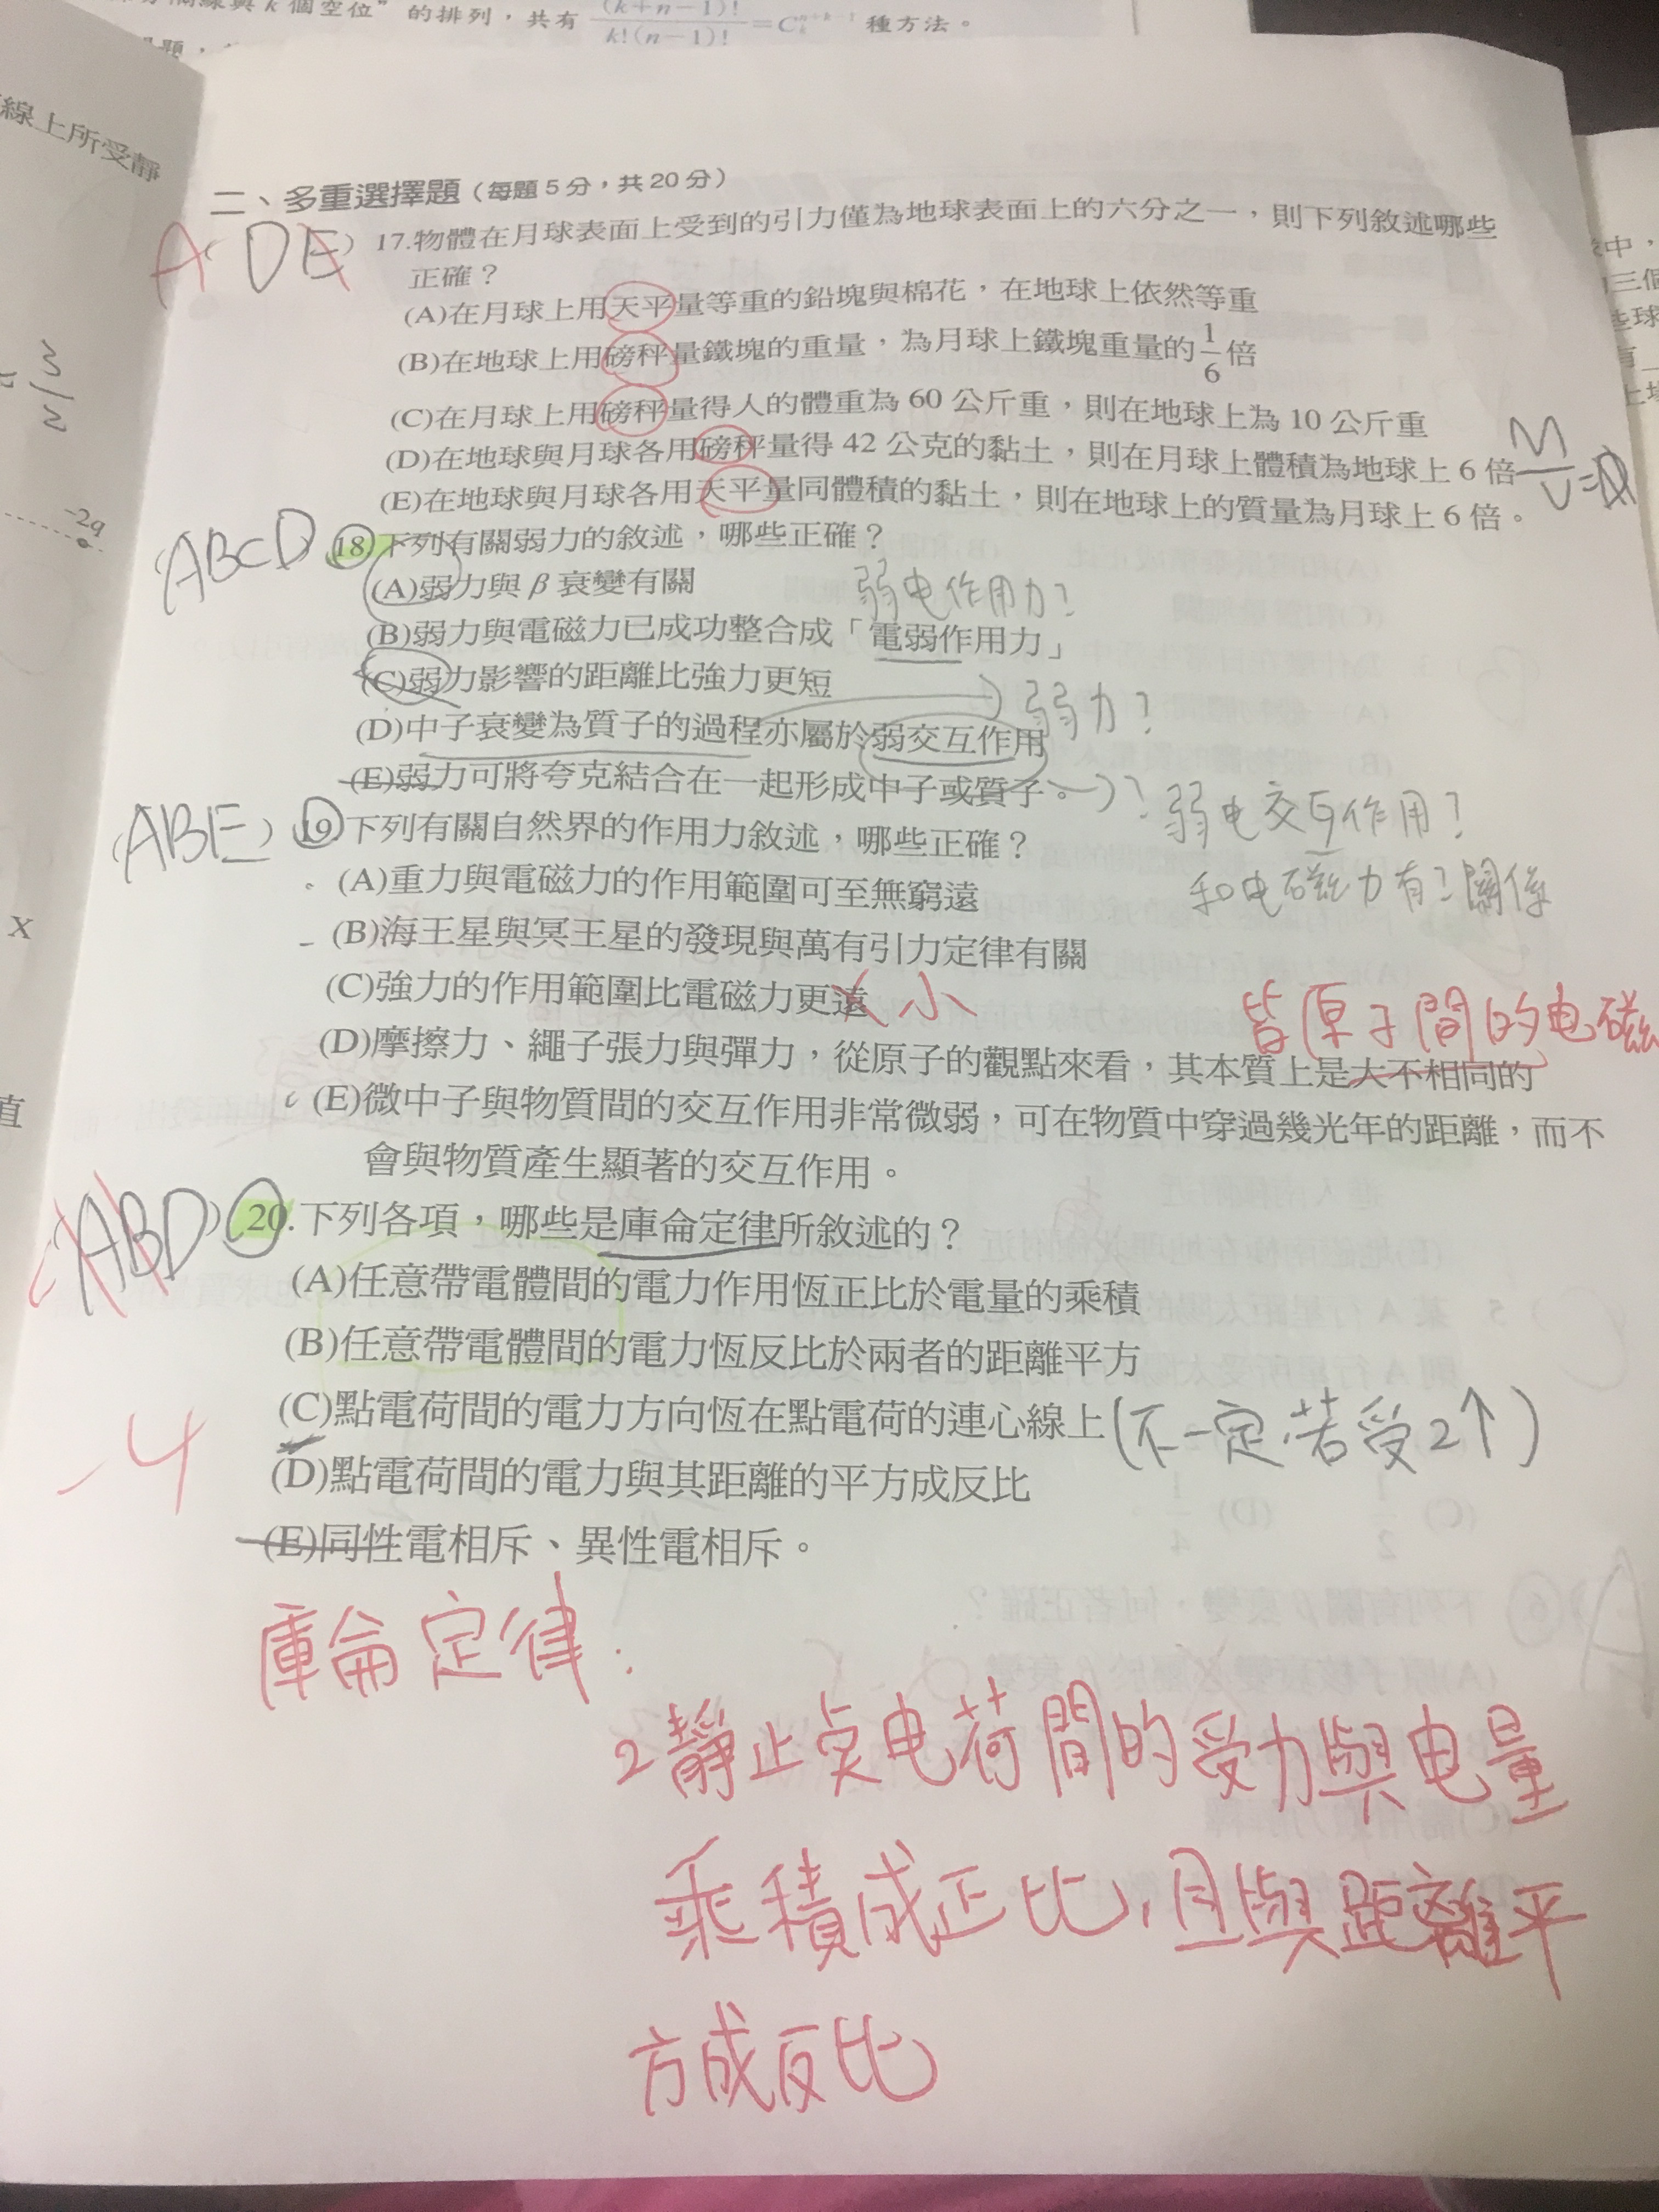 個空位”的排列，共有 (k+n−1)! / k!(n−1)! = C 種方法。
線上所受靜
3/2
-2q
x
直
二、多重選擇題（每題5分，共20分）
A DE ) 17.物體在月球表面上受到的引力僅為地球表面上的六分之一，則下列敘述哪些
正確？
(A)在月球上用天平量等重的鉛塊與棉花，在地球上依然等重
(B)在地球上用磅秤量鐵塊的重量，為月球上鐵塊重量的1/6倍
(C)在月球上用磅秤量得人的體重為60公斤重，則在地球上為10公斤重
(D)在地球與月球各用磅秤量得42公克的黏土，則在月球上體積為地球上6倍 M/V=D
(E)在地球與月球各用天平量同體積的黏土，則在地球上的質量為月球上6倍。
(ABCD 18.下列有關弱力的敘述，哪些正確？
(A)弱力與β衰變有關
弱电作用力？
(B)弱力與電磁力已成功整合成「電弱作用力」
(C)弱力影響的距離比強力更短
弱力？
(D)中子衰變為質子的過程亦屬於弱交互作用
(E)弱力可將夸克結合在一起形成中子或質子。
弱电交互作用？
和电磁力有？關係
(ABE) 19.下列有關自然界的作用力敘述，哪些正確？
(A)重力與電磁力的作用範圍可至無窮遠
(B)海王星與冥王星的發現與萬有引力定律有關
(C)強力的作用範圍比電磁力更遠 小
皆原子間的电磁
(D)摩擦力、繩子張力與彈力，從原子的觀點來看，其本質上是大不相同的
(E)微中子與物質間的交互作用非常微弱，可在物質中穿過幾光年的距離，而不
會與物質產生顯著的交互作用。
(ABD) 20.下列各項，哪些是庫侖定律所敘述的？
(A)任意帶電體間的電力作用恆正比於電量的乘積
(B)任意帶電體間的電力恆反比於兩者的距離平方
(C)點電荷間的電力方向恆在點電荷的連心線上(不一定.若受2↑)
-4
(D)點電荷間的電力與其距離的平方成反比
(E)同性電相斥、異性電相斥。
庫侖定律：
2靜止点电荷間的受力與电量
乘積成正比，且與距離平
方成反比